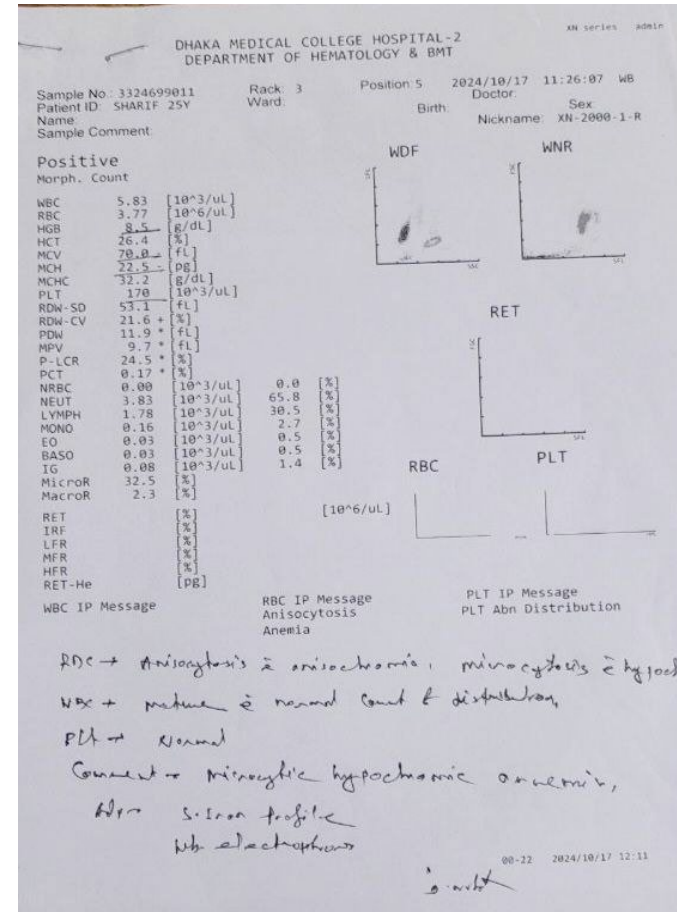 XN series admin
DHAKA MEDICAL COLLEGE HOSPITAL-2
DEPARTMENT OF HEMATOLOGY & BMT
Sample No.: 3324699011 Rack: 3 Position: 5 2024/10/17 11:26:07 WB
Patient ID: SHARIF 25Y Ward: Doctor:
Name: Birth: Sex:
Sample Comment: Nickname: XN-2000-1-R
Positive
Morph. Count
WDF WNR
WBC 5.83 [10^3/uL]
RBC 3.77 [10^6/uL]
HGB 8.5 - [g/dL]
HCT 26.4 [%]
MCV 70.0 - [fL]
MCH 22.5 - [pg]
MCHC 32.2 [g/dL]
PLT 170 [10^3/uL]
RDW-SD 53.1 [fL]
RDW-CV 21.6 + [%]
PDW 11.9 * [fL]
MPV 9.7 * [fL]
P-LCR 24.5 * [%]
PCT 0.17 * [%]
NRBC 0.00 [10^3/uL] 0.0 [%]
NEUT 3.83 [10^3/uL] 65.8 [%]
LYMPH 1.78 [10^3/uL] 30.5 [%]
MONO 0.16 [10^3/uL] 2.7 [%]
EO 0.03 [10^3/uL] 0.5 [%]
BASO 0.03 [10^3/uL] 0.5 [%]
IG 0.08 [10^3/uL] 1.4 [%]
MicroR 32.5 [%]
MacroR 2.3 [%]
RET
RBC PLT
RET [%] [10^6/uL]
IRF [%]
LFR [%]
MFR [%]
HFR [%]
RET-He [pg]
WBC IP Message RBC IP Message PLT IP Message
Anisocytosis PLT Abn Distribution
Anemia
RBC → Anisocytosis c̄ anisochromia, microcytosis c̄ hypoch
WBC → mature c̄ normal count & distribution,
Plt → Normal
Comment → Microcytic hypochromic anaemia,
Adv → S. Iron profile
Hb electrophoresis
00-22 2024/10/17 12:11